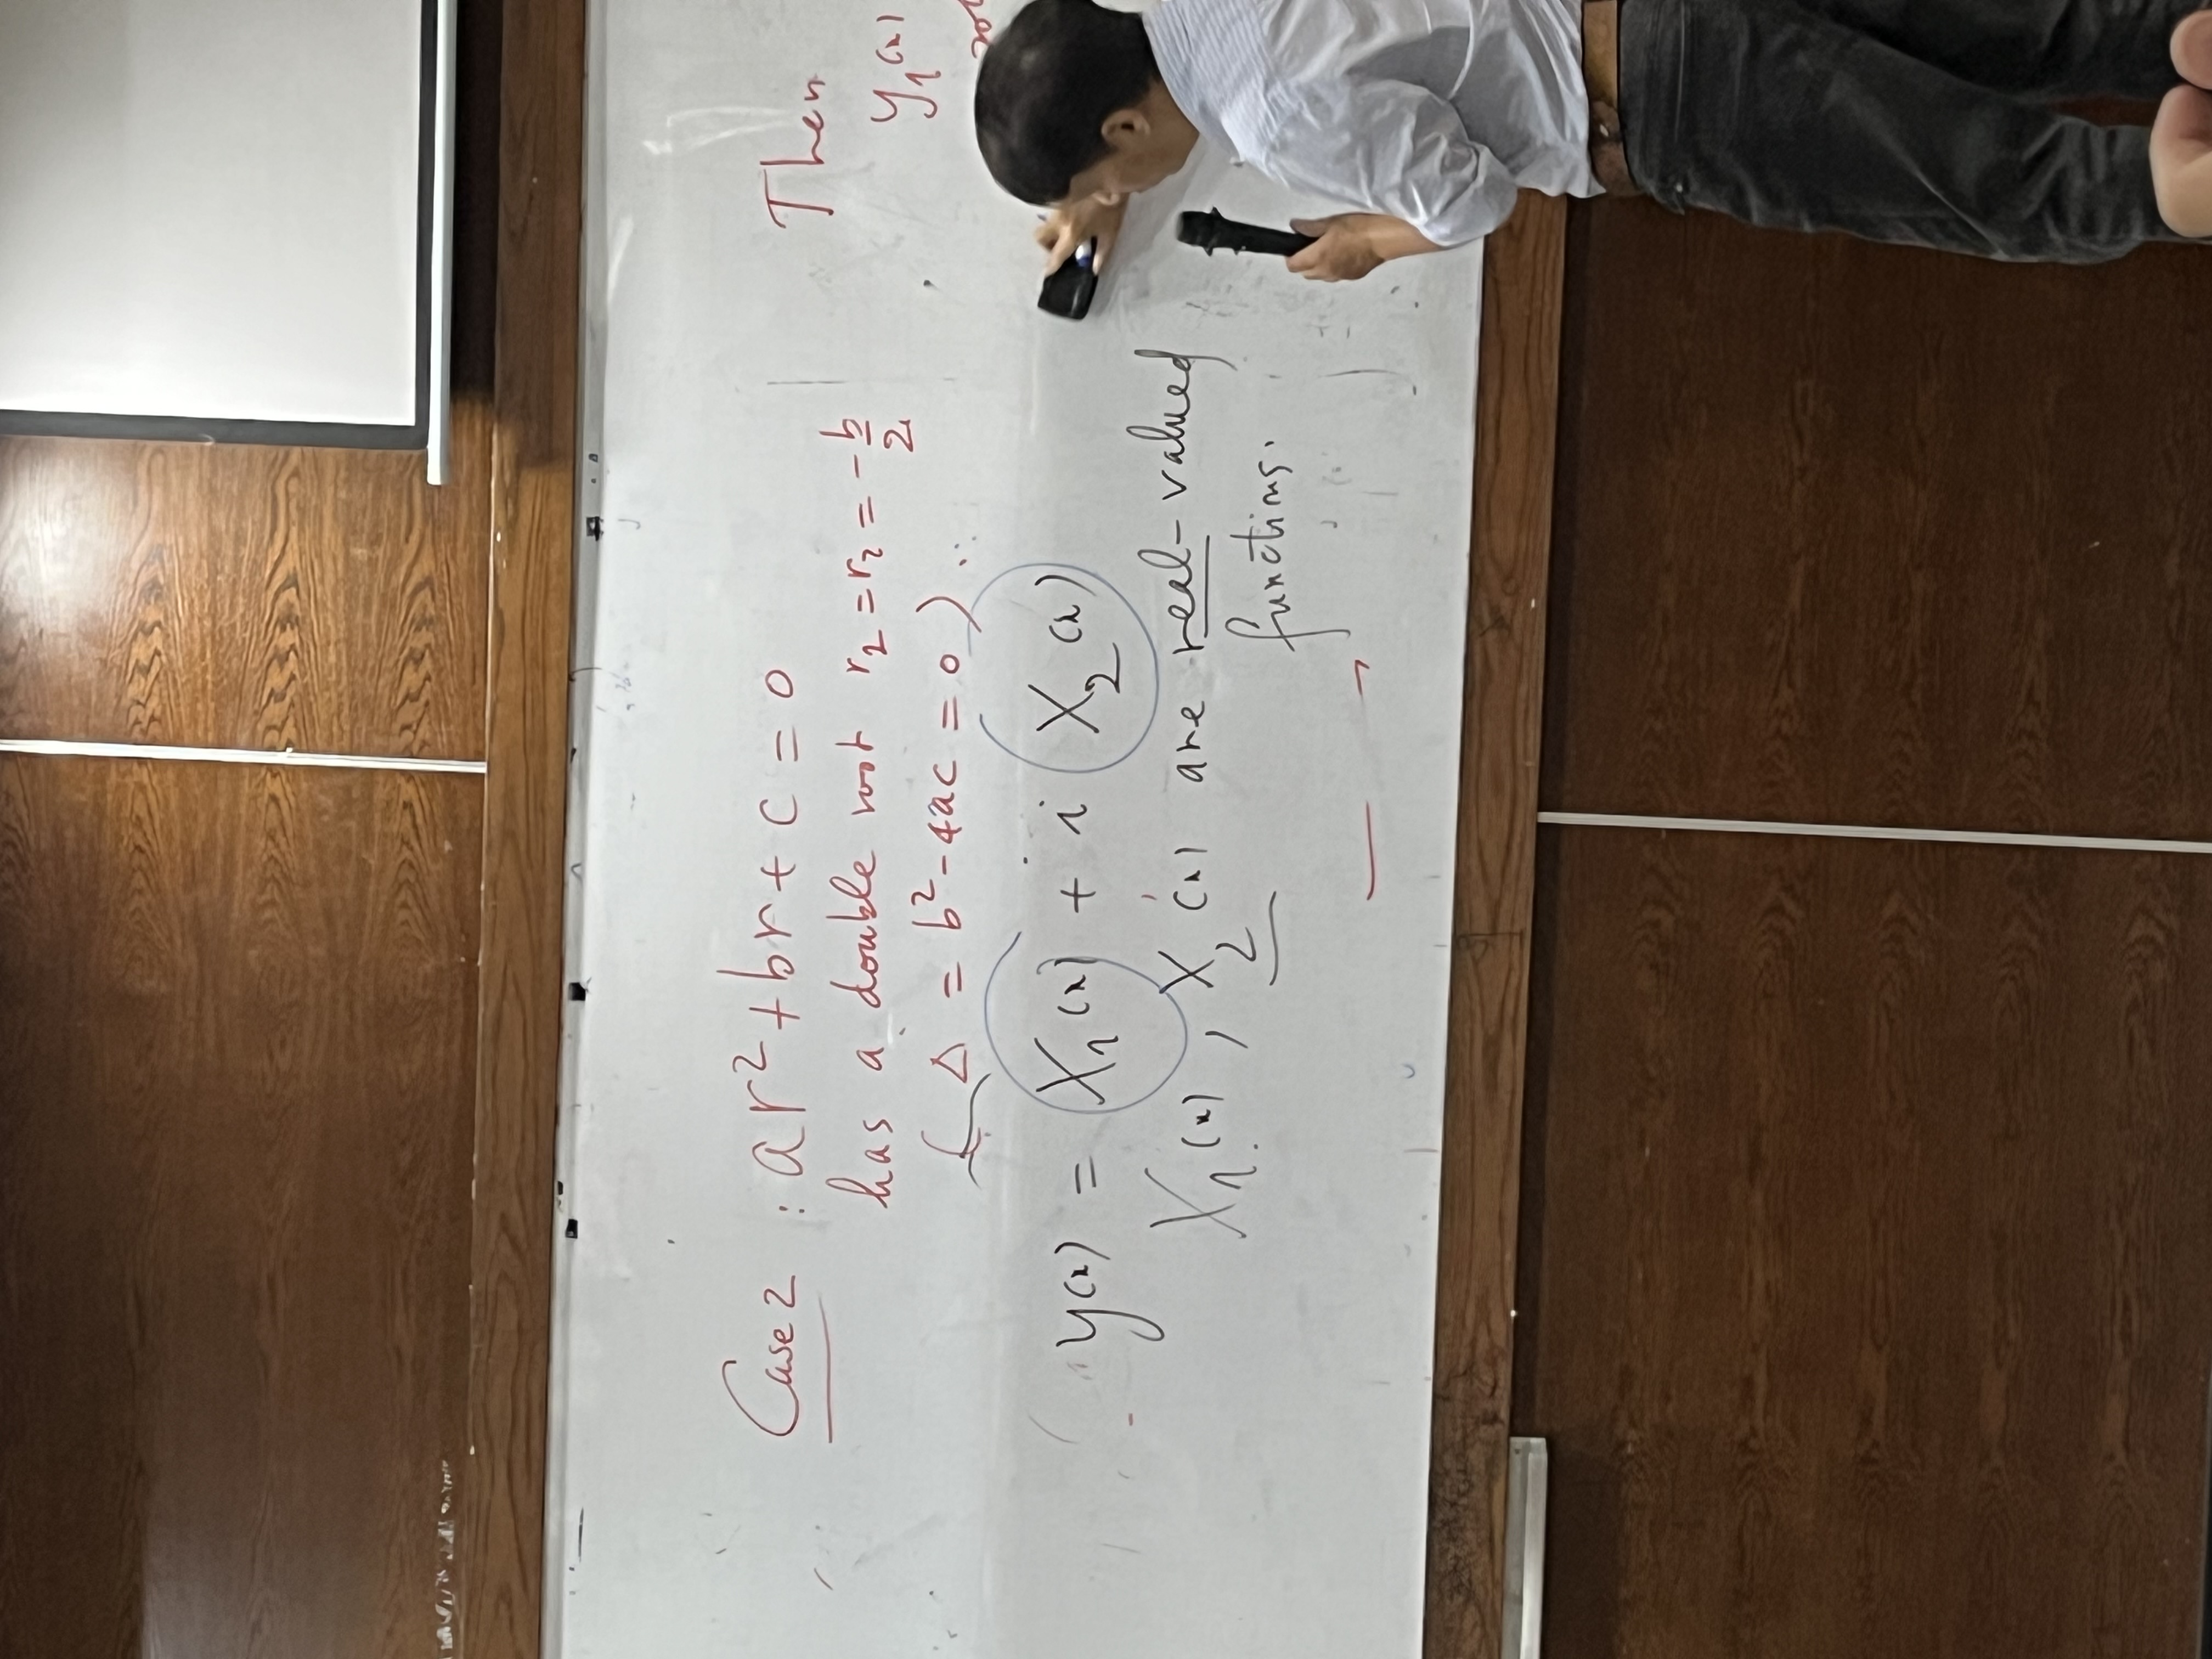 Case 2 : ar² + br + c = 0
has a double root r₂ = r₂ = -b/2
( Δ = b² - 4ac = 0 ) .
y(x) = X₁(x) + i X₂(x)
X₁(x) , X₂(x) are real-valued
functions.
Then
y₁(x)